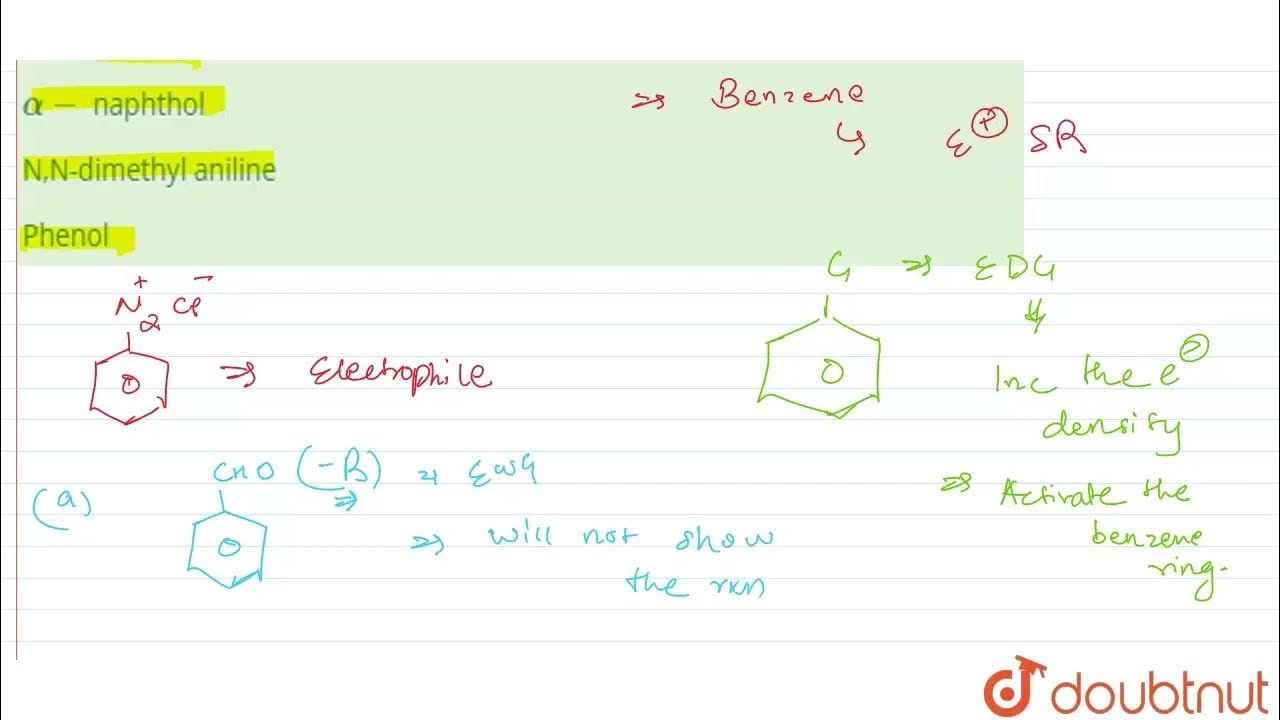 α – naphthol
N,N-dimethyl aniline
Phenol
⇒ Benzene
↳ E⊕ SR
G ⇒ EDG
⇓
Inc the e⊖
density
⇒ Activate the
benzene
ring.
N₂⁺ Cl⁻
⇒ Electrophile
(a)
CHO (-R) ⇒ EWG
⇒ will not show
the rxn
doubtnut